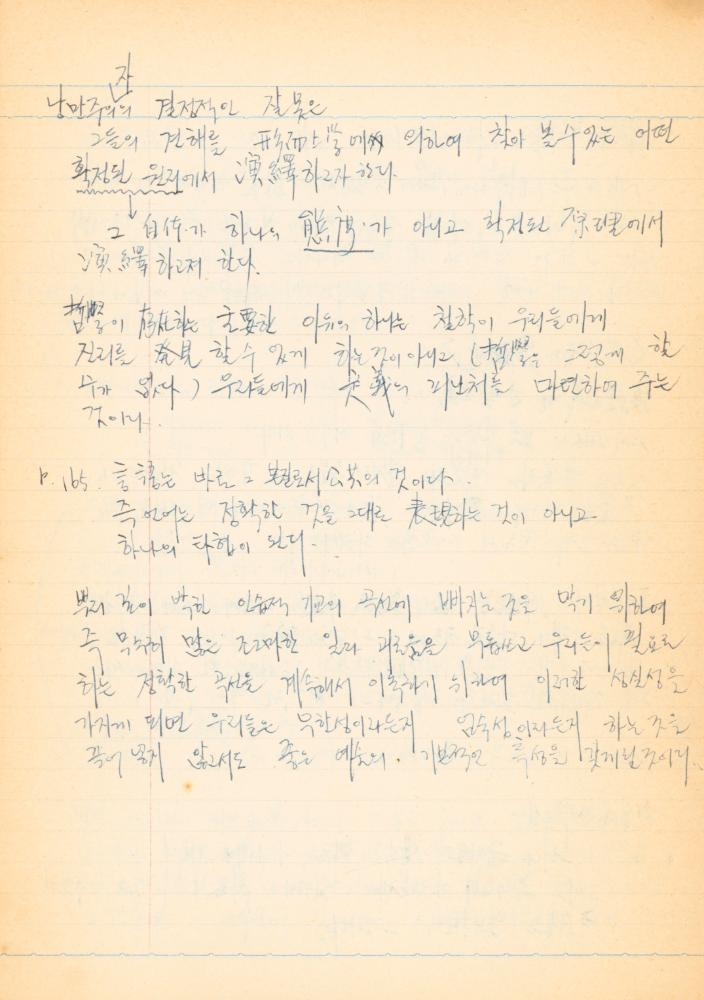 자
낭만주의의 결정적인 잘못은
그들의 견해를 形而上学에 의하여 찾아 볼 수 있는 어떤
확정된 원리에서 演繹하고자 한다.
그 自体가 하나의 態度가 아니고 확정된 原理에서
演繹하고저 한다.
哲學이 存在하는 主要한 이유의 하나는 철학이 우리들에게
진리를 発見할 수 있게 하는 것이 아니고 (哲學은 그렇게 할
수가 없다) 우리들에게 定義의 피난처를 마련하여 주는
것이다.
P. 165. 言語는 바로 그 본질로서 公共의 것이다.
즉 언어는 정확한 것을 그대로 表現하는 것이 아니고
하나의 타협이 된다.
뿌리 깊이 박힌 인습적 기교의 곡선에 빠지는 것을 막기 위하여
즉 무수히 많은 조그마한 일과 괴로움을 무릅쓰고 우리들이 필요로
하는 정확한 곡선을 계속해서 이룩하기 위하여 이러한 성실성을
가지게 되면 우리들은 무한성이라든지 엄숙성이라든지 하는 것을
끌어 넣지 않고서도 좋은 예술의 기본적인 특성을 갖게 될 것이다.